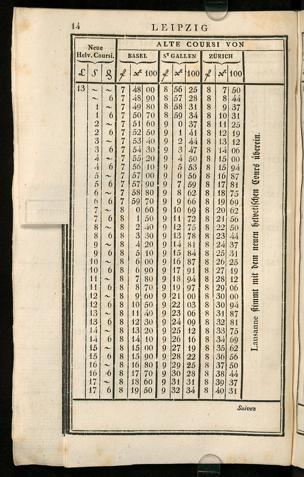 14 LEIPZIG
Neue Helv. Coursi. ALTE COURSI VON
BASEL St GALLEN ZÜRICH
£ ß ₰ f xr 100 f xr 100 f xr 100
13 ~ ~ 7 48 00 8 56 25 8 7 50
~ 6 7 48 90 8 57 28 8 8 44
1 ~ 7 49 80 8 58 31 8 9 37
1 6 7 50 70 8 59 34 8 10 31
2 ~ 7 51 60 9 0 37 8 11 25
2 6 7 52 50 9 1 41 8 12 19
3 ~ 7 53 40 9 2 44 8 13 12
3 6 7 54 30 9 3 47 8 14 06
4 ~ 7 55 20 9 4 50 8 15 00
4 6 7 56 10 9 5 53 8 15 94
5 ~ 7 57 00 9 6 56 8 16 87
5 6 7 57 90 9 7 59 8 17 81
6 ~ 7 58 80 9 8 62 8 18 75
6 6 7 59 70 9 9 66 8 19 69
7 ~ 8 0 60 9 10 69 8 20 62
7 6 8 1 50 9 11 72 8 21 56
8 ~ 8 2 40 9 12 75 8 22 50
8 6 8 3 30 9 13 78 8 23 44
9 ~ 8 4 20 9 14 81 8 24 37
9 6 8 5 10 9 15 84 8 25 31
10 ~ 8 6 00 9 16 87 8 26 25
10 6 8 6 90 9 17 91 8 27 19
11 ~ 8 7 80 9 18 94 8 28 12
11 6 8 8 70 9 19 97 8 29 06
12 ~ 8 9 60 9 21 00 8 30 00
12 6 8 10 50 9 22 03 8 30 94
13 ~ 8 11 40 9 23 06 8 31 87
13 6 8 12 30 9 24 09 8 32 81
14 ~ 8 13 20 9 25 12 8 33 75
14 6 8 14 10 9 26 16 8 34 69
15 ~ 8 15 00 9 27 19 8 35 62
15 6 8 15 90 9 28 22 8 36 56
16 ~ 8 16 80 9 29 25 8 37 50
16 6 8 17 70 9 30 28 8 38 44
17 ~ 8 18 60 9 31 31 8 39 37
17 6 8 19 50 9 32 34 8 40 31
Lausanne stimmt mit dem neuen helvetischen Cours überein.
Suivez